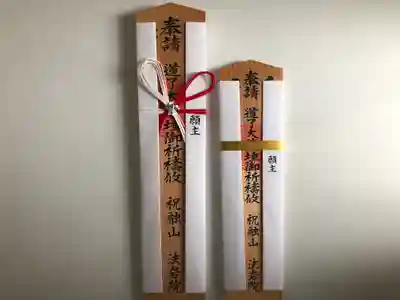 奉請 道了大 埵御祈禱攸 祝融山 院
願主
奉請 道了大 埵御祈禱攸 祝融山 院
願主